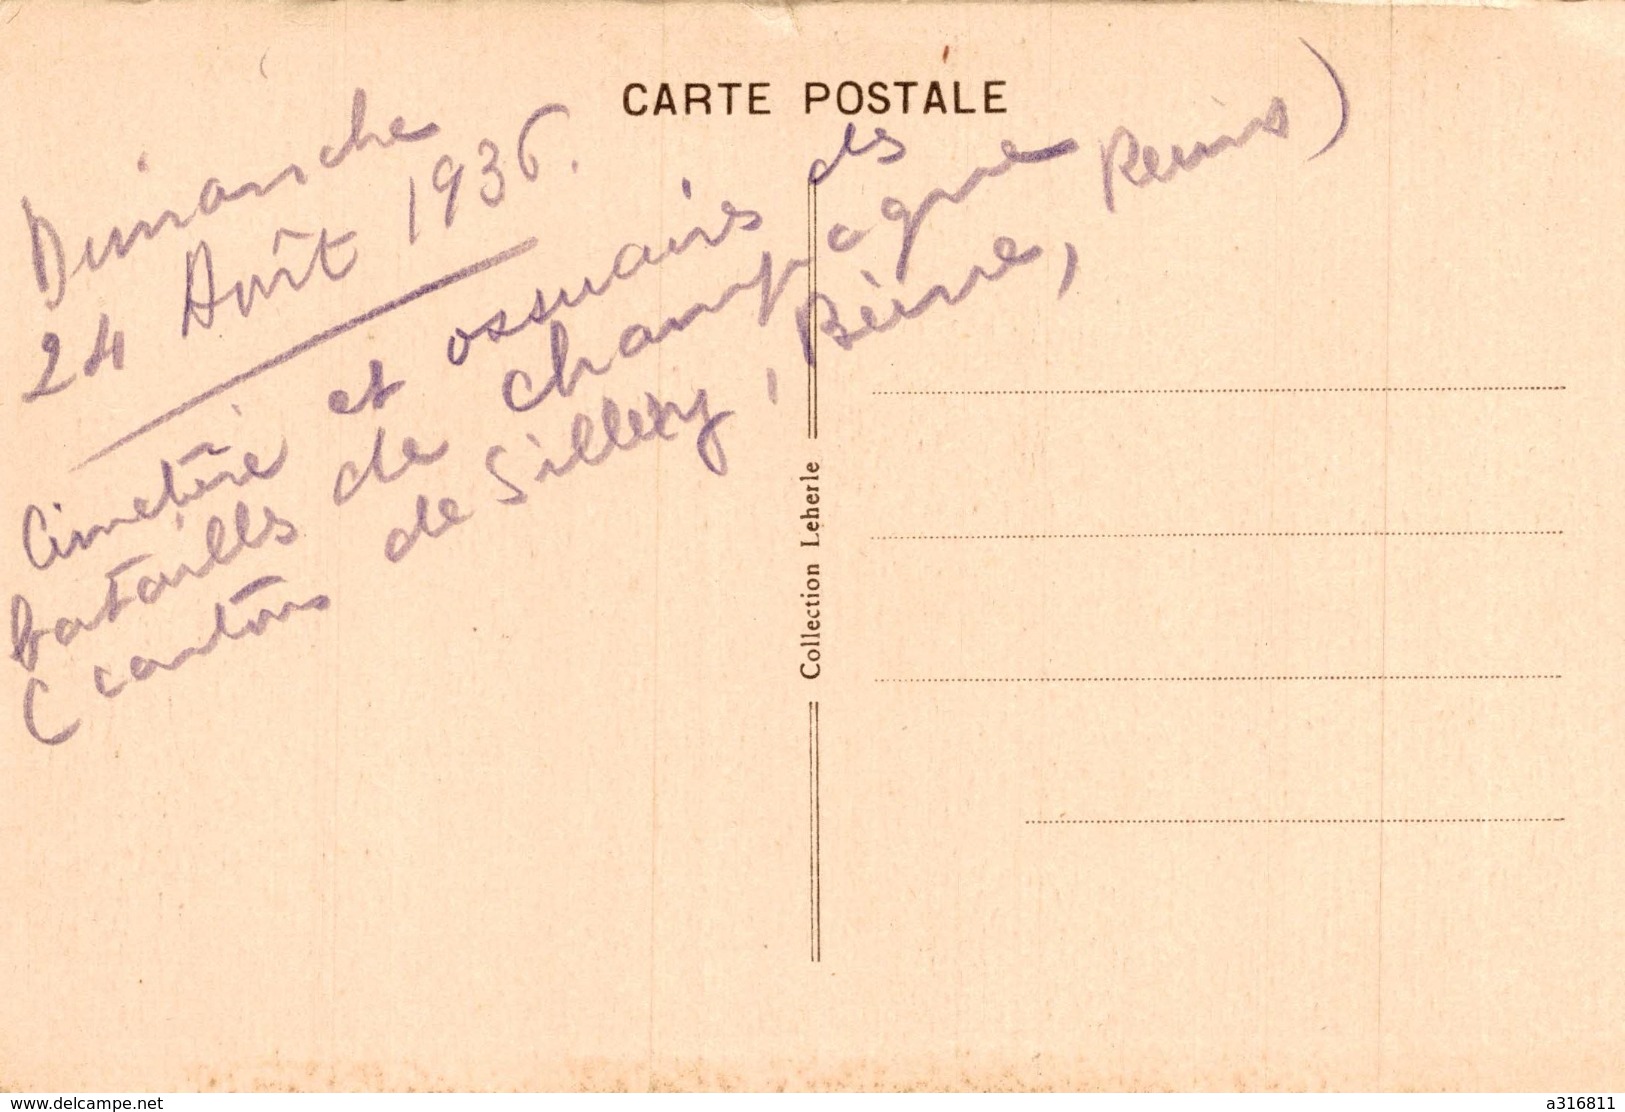 CARTE POSTALE
Dimanche
24 Août 1936.
Cimetière et ossuaires des
batailles de champagne
(cantons de Sillery, Beine, Reims)
Collection Leherle
www.delcampe.net
a316811